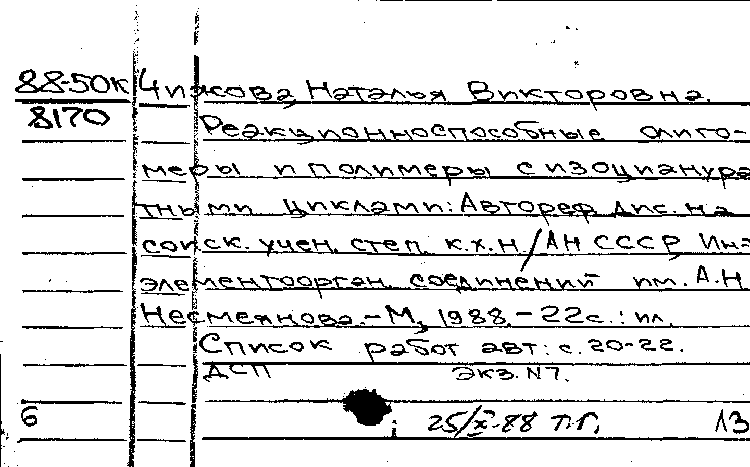 88-50к Чижова, Наталья Викторовна.
8170 Реакционноспособные олиго-
меры и полимеры с изоцианура
тными циклами: Автореф. дис. на
соиск. учен. степ. к.х.н. / АН СССР, Ин-т
элементоорган. соединений им. А.Н.
Несмеянова. - М., 1988. - 22с.: ил.
Список работ авт.: с. 20-22.
ДСП экз. N7.
6 25/X-88 п.г. 13